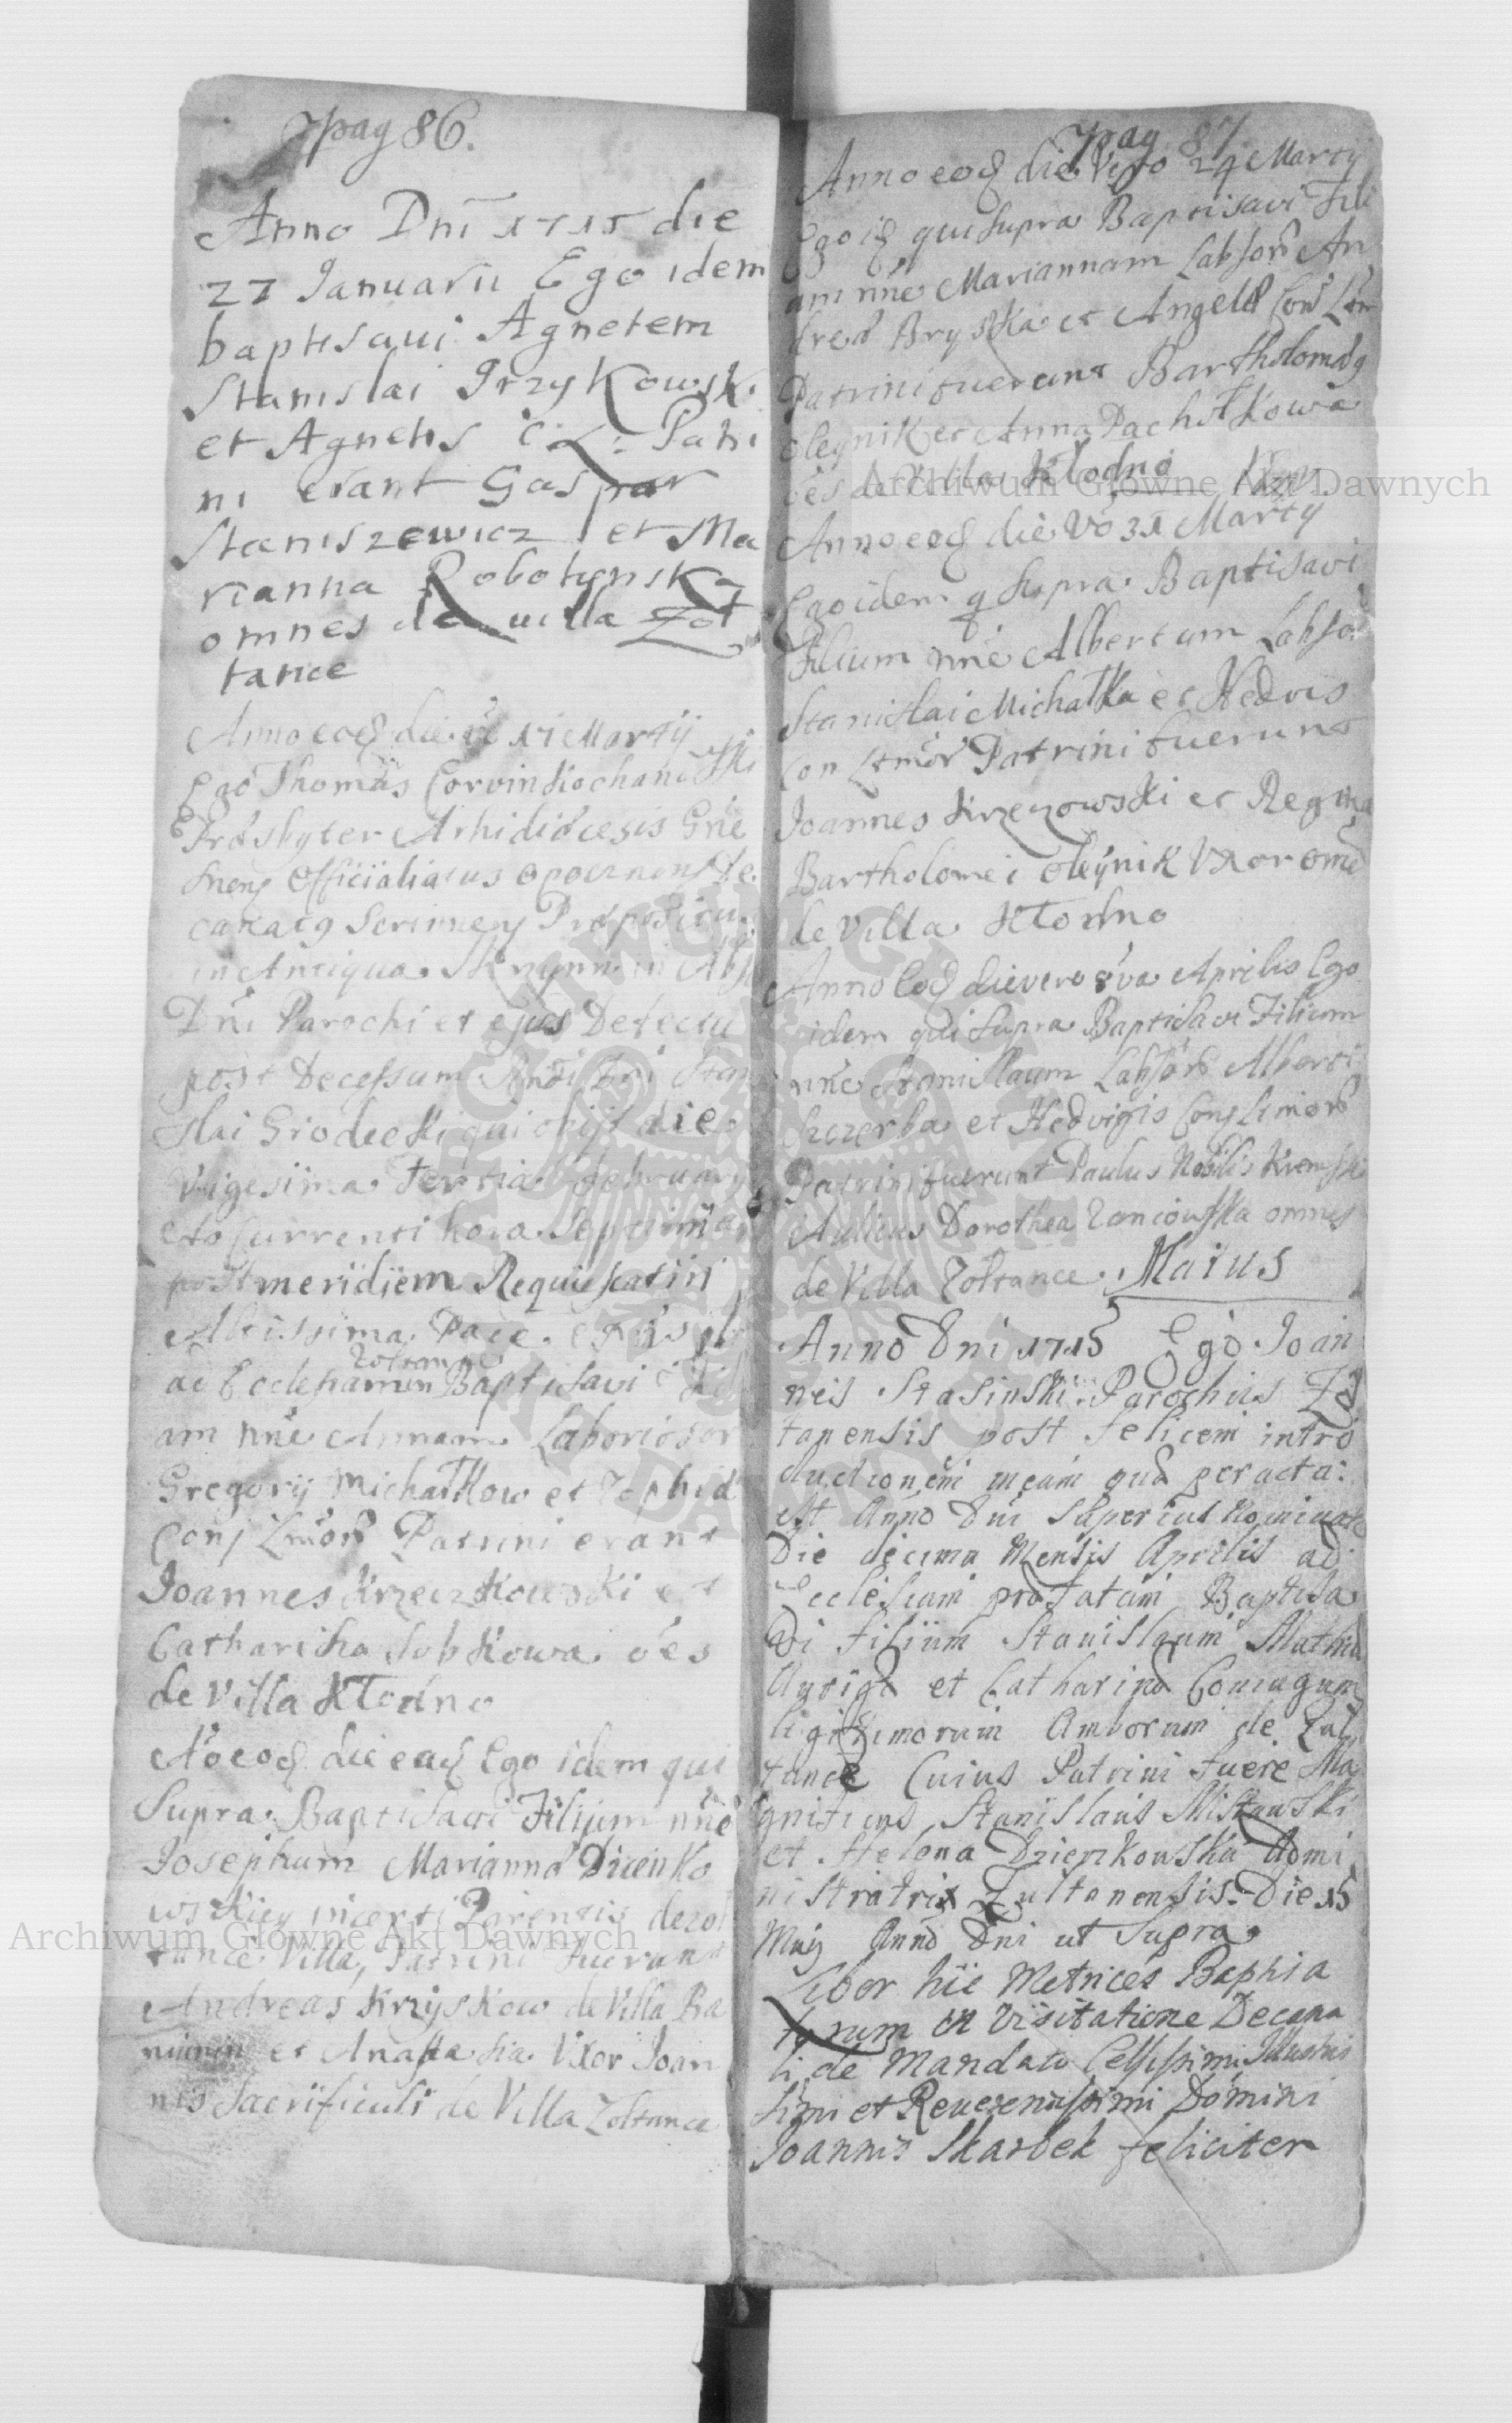 pag 86.
Anno Dni 1715 die
27 Januarii Ego idem
baptisaui Agnetem
Stanislai Grzykowsk.
et Agnetis C: L: Patri
ni erant Gaspar
Staniszewicz et Ma
rianna Robotyenska
omnes de uilla Zol
tance
Anno eod die 17 Martÿ
Ego Thomas Corvin Kochanowski
Presbyter Arhidiœcesis Gne
snens Officialatus Opocznens De
canatq Prœpositu
in Antiqua Skrzynn in Abs
Dni Parochi et ejus Defectu
post Decessum Stani
slai Grodecki qui obijt die
Vigesima Tertia Februarij
Ao Currenti hora Septima
post meridiem Requiescat in
Altissima Pace.
Zoltance
ad Ecclesiam Baptisavi Fili
am nne Annam Laboriosor
Gregorÿ Michałkow et Zophiæ
Conj Ltmor Patrini erant
Joannes Krzeczkowski et
Catharina Sobkowa oes
de Villa Kłodno
Ao eod die ead Ego idem qui
Supra Baptisavi Filium nne
Josephum Mariannæ Dzienko
wskiey incerti Parentis de Zol
tance Villa, Patrini fuerant
Andreas Krzyskow de Villa Ba
et Anastasia Uxor Joan
nis Sacrificuli de Villa Zoltance
pag 87
Anno eod die Vero 24 Martÿ
Ego id qui supra Baptisavi Fili
am nne Mariannam Labsor An
dreæ Bryska et Angelæ Con Ltm
Patrini fuerunt Bartholomæq
Oleynik et Anna Pachołkowa
oes de Villa Kłodno
Anno eod die Vo 31 Martÿ
Ego idem q supra Baptisavi
Filium nne Albertum Labso
Stanislai Michałka et Hedvis
Con Ltmor Patrini fuerunt
Joannes Krzeczowski et Regina
Bartholomei Oleynik Uxor omē
de Villa Kłodno
Anno Eod die vero 8va Aprilis Ego
idem qui supra Baptisavi Filium
nne Stanislaum Labsor Alberti
Szczerba et Hedvigis Conj Ltmor
Patrini fuerunt Paulus Nobilis Krempski
Aulicus Dorothea Zaniowska omnes
de Villa Zoltance. Maius
Anno Dni 1715 Ego Joan
nes Stasinski Parochus Zol
tanensis post felicem intro
ductionem meam quæ peracta
est Anno Dni superius nominato
Die decima Mensis Aprilis ad
Ecclesiam præfatam Baptisa
vi filium Stanislaum Mathiæ
Aurigæ et Catharinæ Coniugum
ligitimorum Amborum de Zul
tance Cuius Patrini fuere Ma
gnificus Stanislaus Mistowski
et Helena Dzierzkowska Admi
nistratrix Zultanensis. Die 15
Maij Anno Dni ut Supra
Liber hic Metrices Baptiza
torum in Visitatione Decana
li de Mandato Celsissimi Illustris
simi et Reuerendissimi Domini
Joannis Skarbek feliciter
Archiwum Główne Akt Dawnych
Archiwum Główne Akt Dawnych